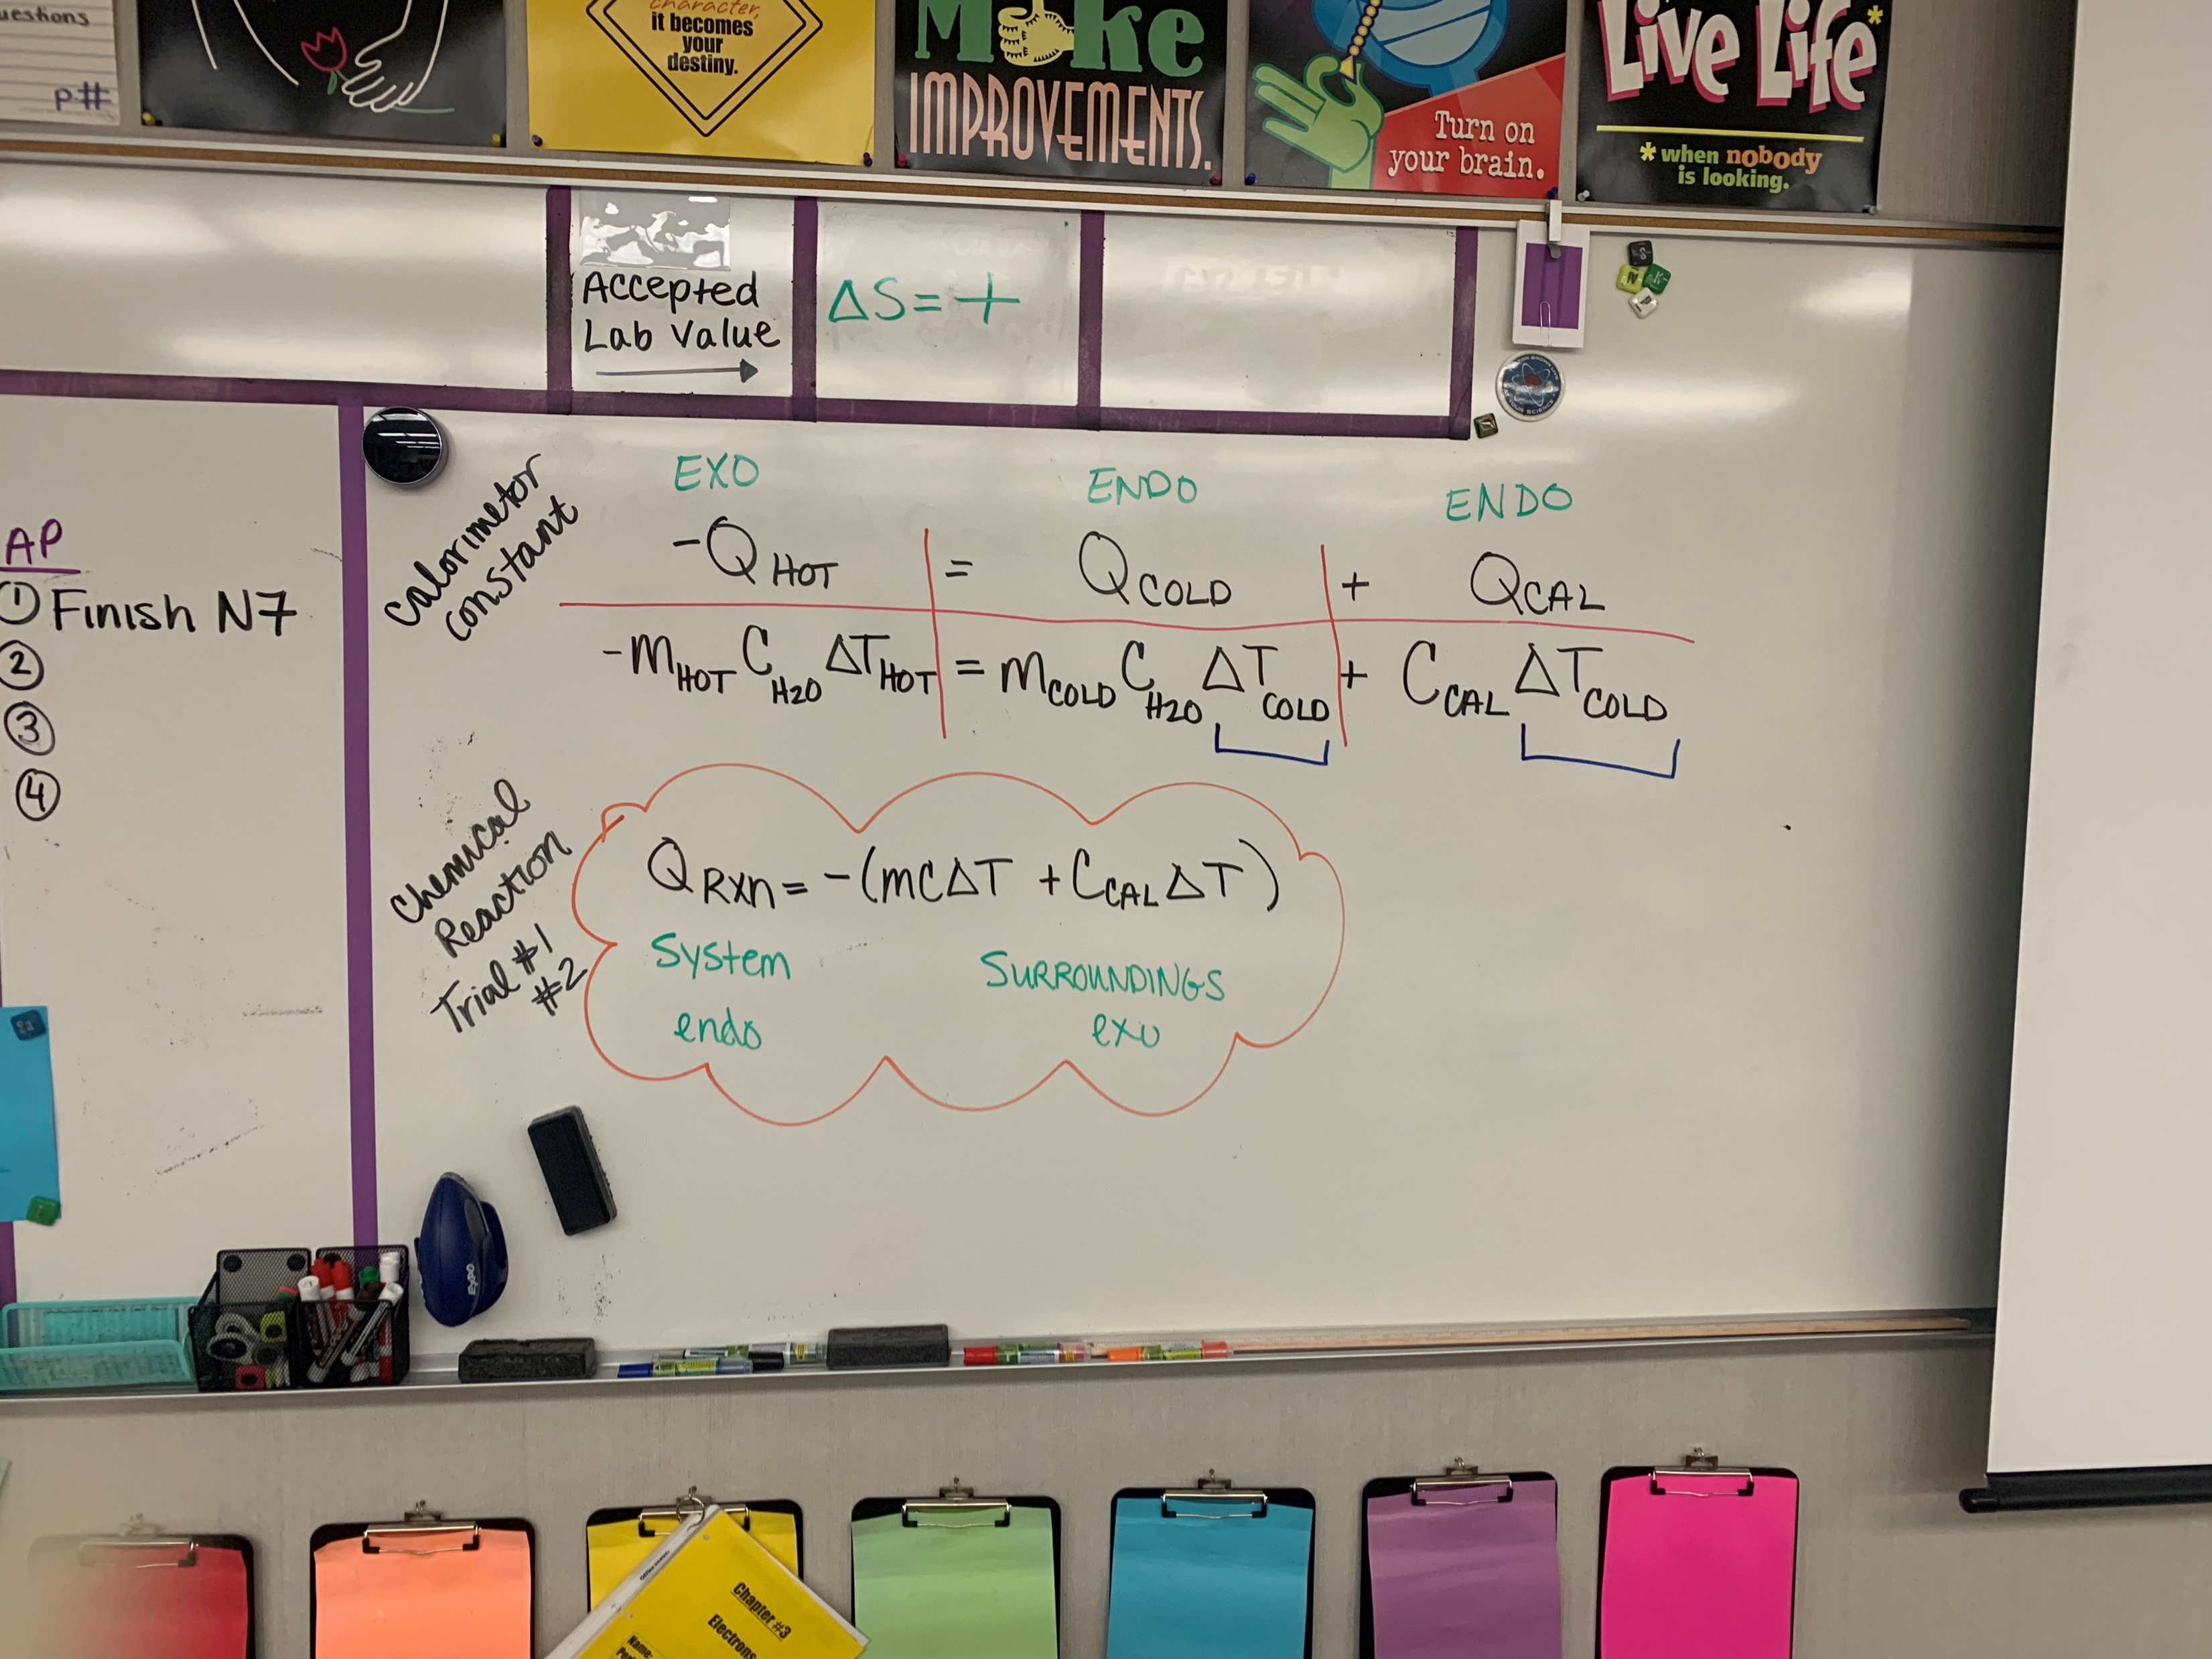 uestions
P#
character,
it becomes
your
destiny.
Make
IMPROVEMENTS.
Turn on
your brain.
Live Life*
* when nobody
is looking.
Accepted
Lab Value
ΔS = +
AP
① Finish N7
②
③
④
Calorimetor
constant
EXO ENDO ENDO
-Q HOT = Q COLD + Q CAL
-m HOT C H2O ΔT HOT = m COLD C H2O ΔT COLD + C CAL ΔT COLD
Chemical
Reaction
Trial #1
#2
Q Rxn = -(mCΔT + C CAL ΔT)
System SURROUNDINGS
endo exo
EXPO
Chapter #3
Electrons
Name: